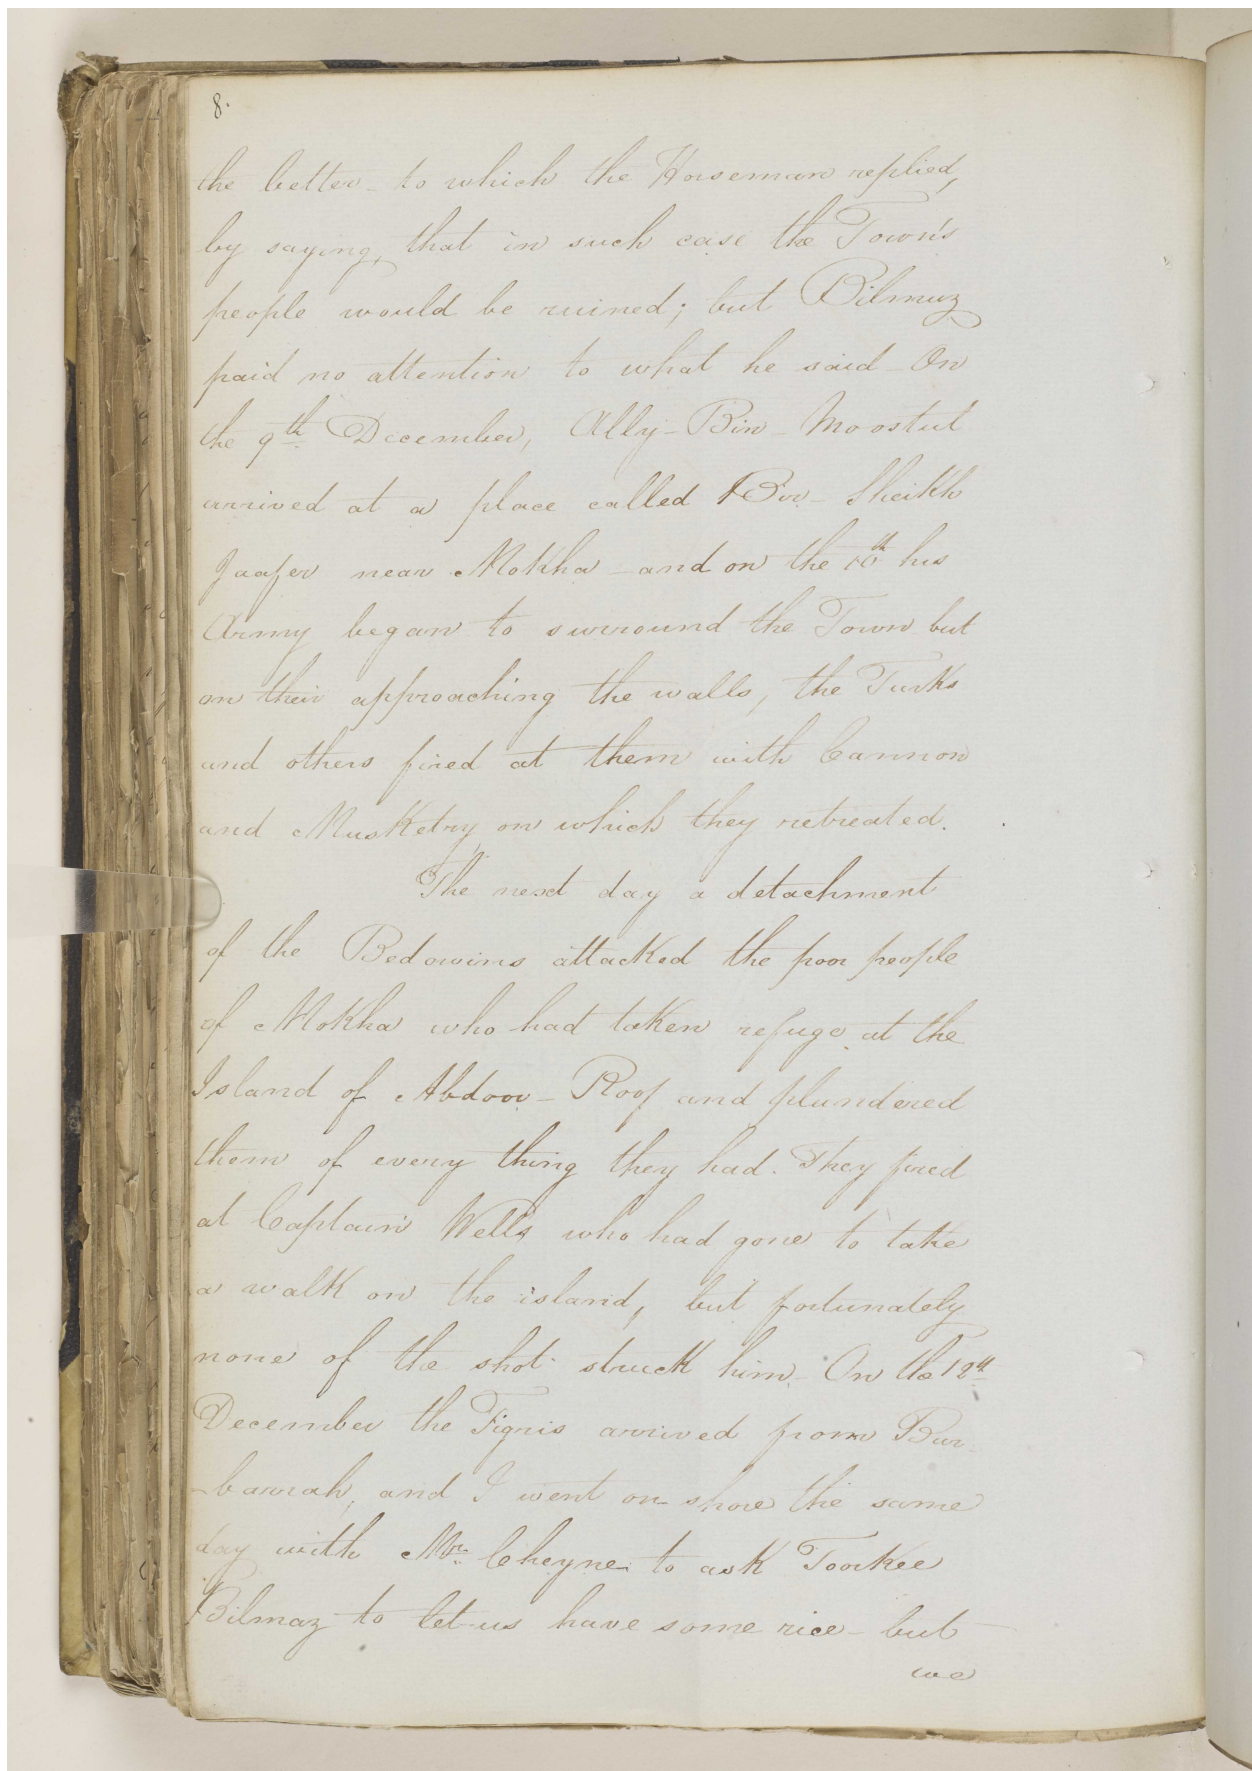 8.
the better - to which the Horseman replied,
by saying, that in such case the Town's
people would be ruined; but Bilmuz
paid no attention to what he said - On
the 9th December, Ally - Bin - Moostul
arrived at a place called Bir - Sheikh
Jaafer near Mokha - and on the 10th his
Army began to surround the Town but
on their approaching the walls, the Turks
and others fired at them with Cannon
and Musketry on which they retreated.
The next day a detachment
of the Bedowins attacked the poor people
of Mokha who had taken refuge at the
Island of Abdoor - Roof and plundered
them of every thing they had. They fired
at Captain Wells who had gone to take
a walk on the island, but fortunately
none of the shot struck him. - On the 12th
December the Tigris arrived from Bur-
-barrah, and I went on shore the same
day with Mr. Cheyne to ask Toorkee
Bilmaz to let us have some rice - but
we